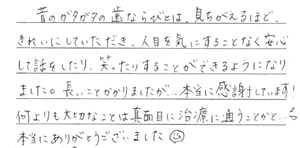 昔のガタガタの歯ならびとは、見ちがえるほど、
きれいにしていただき、人目を気にすることなく安心
して話をしたり、笑ったりすることができるようになり
ました。長いことかかりましたが…本当に感謝しています!
何よりも大切なことは真面目に治療に通うことかと…。
本当にありがとうございました